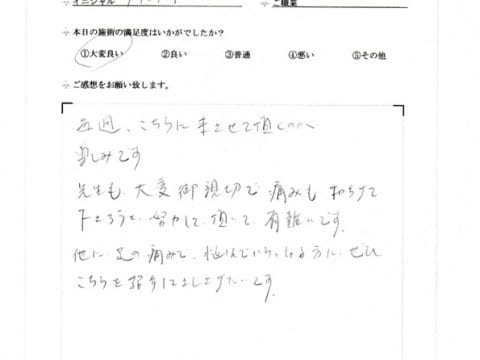 イニシャル
ご職業
本日の施術の満足度はいかがでしたか?
①大変良い ②良い ③普通 ④悪い ⑤その他
ご感想をお願い致します。
毎週、こちらに来させて頂くのが
楽しみです
先生も、大変御親切で痛みも和らげて
下さろうと、努力して頂いて、有難いです。
他に、足の痛みで、悩んでいらっしゃる方に、ぜひ
こちらを紹介して差し上げたいです。